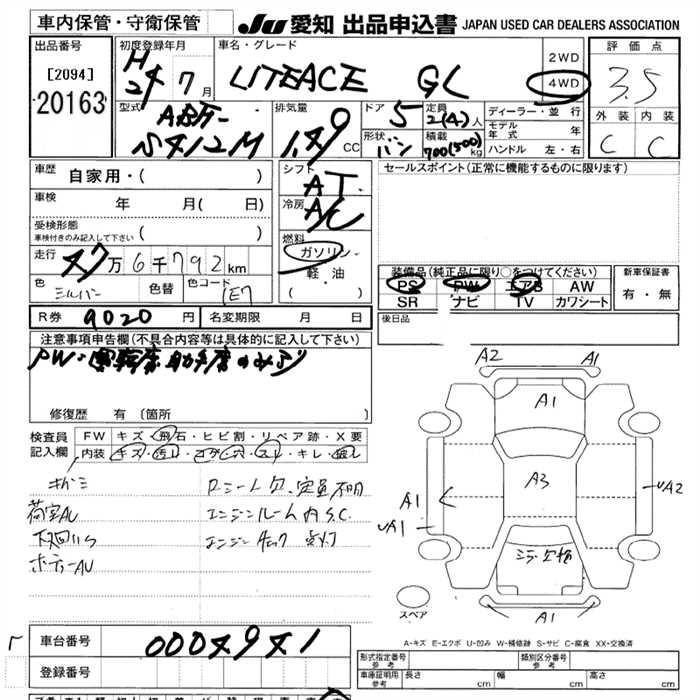 車内保管・守衛保管
JU 愛知 出品申込書 JAPAN USED CAR DEALERS ASSOCIATION
出品番号
[2094]
20163
初度登録年月
H
24 7 月
車名・グレード
LITEACE GL
2WD
4WD
評価点
3.5
外装 内装
C C
型式
ABF-
S412M
排気量
1.49 CC
ドア
5
形状
バン
定員
2(4) 人
積載
700(500) kg
ディーラー・並行
モデル年式 年
ハンドル 左・右
車歴
自家用・( )
車検
年 月( 日)
受検形態
車検付きのみ記入して下さい ( )
走行
万 6 千 792 km
色
シルバー
色替
色コード
1E7
シフト
AT
冷房
A/C
燃料
ガソリン
軽・油
( )
セールスポイント (正常に機能するものに限ります)
装備品(純正品に限り○をつけてください)
PS PW エアB AW
SR ナビ TV カワシート
新車保証書
有・無
後日品
R券 9020 円
名変期限 月 日
注意事項申告欄(不具合内容等は具体的に記入して下さい)
PW・運転席 助手席のみ
修復歴 有 〔箇所 〕
検査員
記入欄
FW キズ・飛石・ヒビ割・リペア跡・X要
内装 キズ・汚レ・コゲ・穴・スレ・キレ・破レ
キバミ
荷室AU
下廻りS
ボデーAU
Rシート欠、定員不明
エンジンルーム内 S.C.
エンジンチェック 点灯
A2 A1
A1
A3
A1
A1
A2
A1
スペア
A-キズ E-エクボ U-凹み W-補修跡 S-サビ C-腐食 XX-交換済
車台番号
登録番号
形式指定番号
参考
類別区分番号
参考
車庫証明用
参考
長さ cm
幅 cm
高さ cm